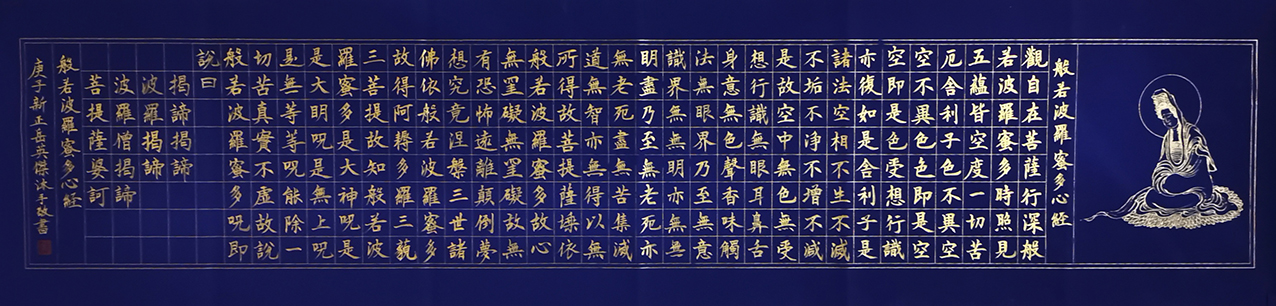 般若波羅蜜多心經
觀自在菩薩行深般
若波羅蜜多時照見
五蘊皆空度一切苦
厄舍利子色不異空
空不異色色即是空
空即是色受想行識
亦復如是舍利子是
諸法空相不生不滅
不垢不淨不增不減
是故空中無色無受
想行識無眼耳鼻舌
身意無色聲香味觸
法無眼界乃至無意
識界無無明亦無無
明盡乃至無老死亦
無老死盡無苦集滅
道無智亦無得以無
所得故菩提薩埵依
般若波羅蜜多故心
無罣礙無罣礙故無
有恐怖遠離顛倒夢
想究竟涅槃三世諸
佛依般若波羅蜜多
故得阿耨多羅三藐
三菩提故知般若波
羅蜜多是大神呪是
是大明呪是無上呪
是無等等呪能除一
切苦真實不虛故說
般若波羅蜜多呪即
說曰
揭諦揭諦
波羅揭諦
波羅僧揭諦
菩提薩婆訶
般若波羅蜜多心經
庚子新正岳英傑沐手敬書